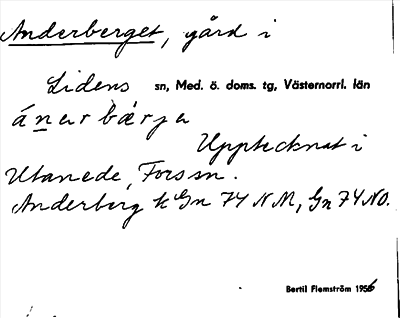 Anderberget, gård i
Lidens sn, Med. ö. doms. tg, Västernorrl. län
ánerbærje
Upptecknat i
Utanede, Fors sn.
Anderberg k Gn 74 NM, Gn 74 NO.
Bertil Flemström 1956